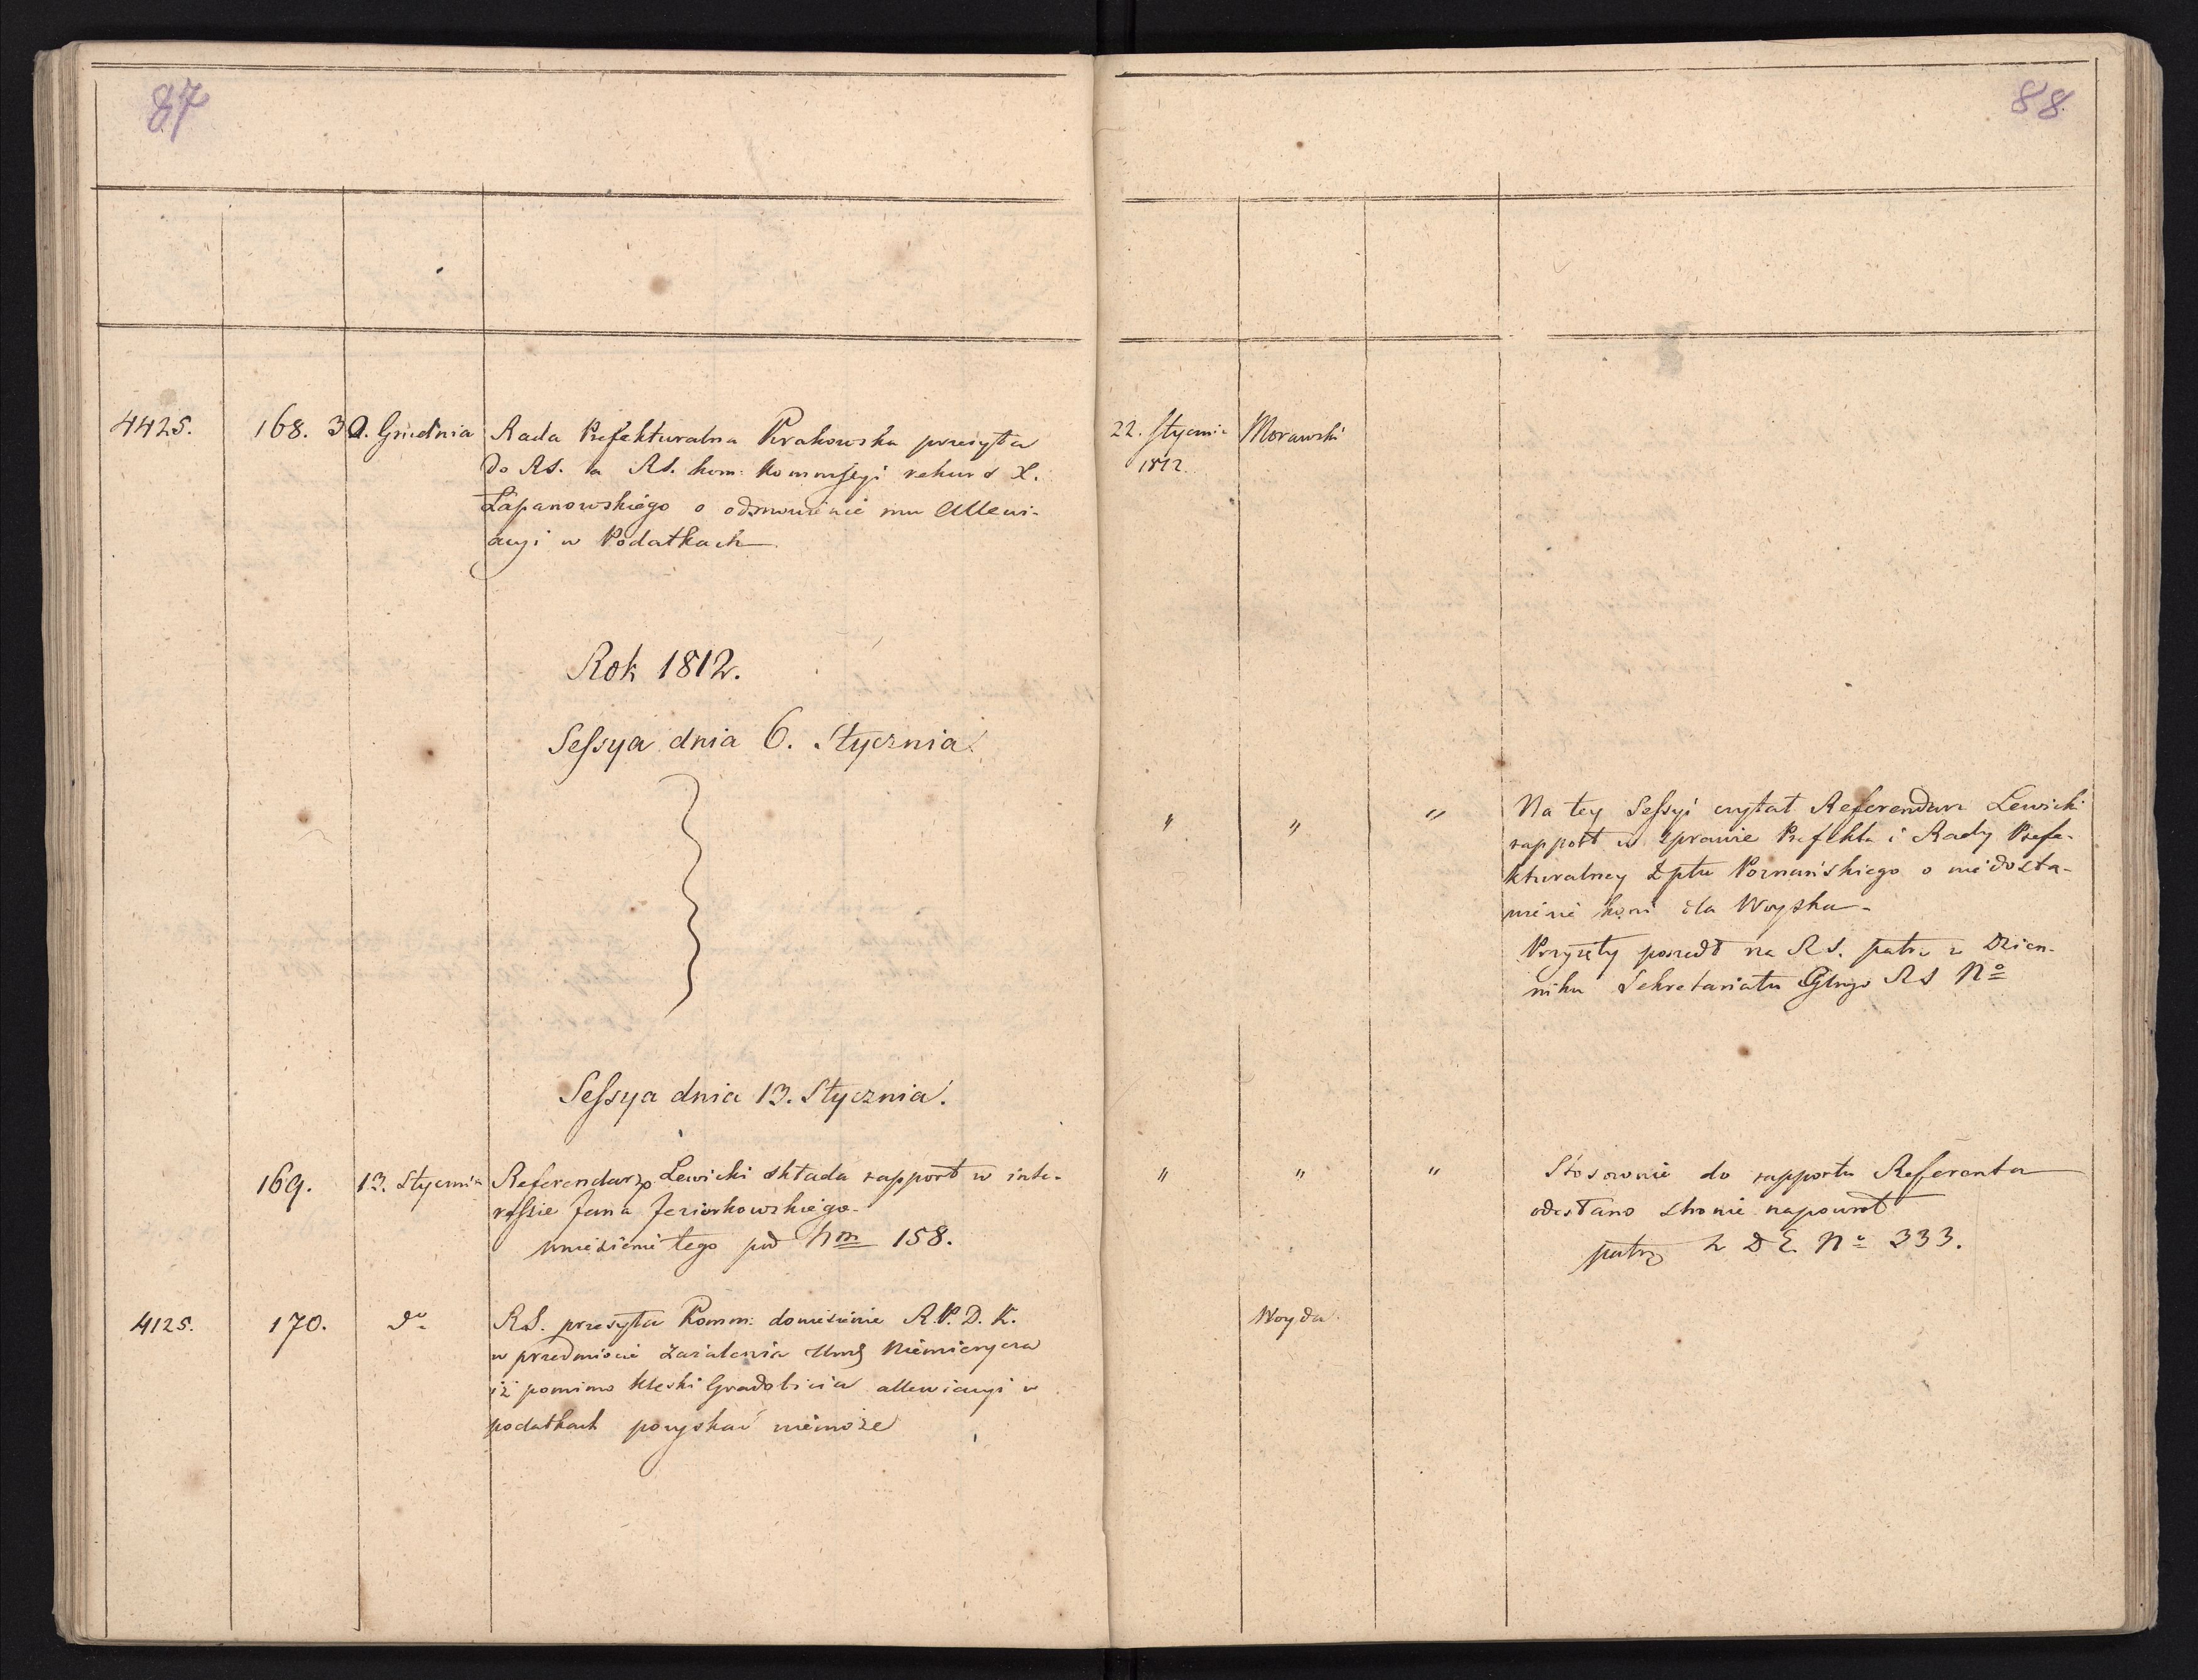 87
4425. 168. 30. Grudnia Rada Prefekturalna Krakowska przesyła
do RS. a RS. kom: Kommissyi rekurs X.
Łapanowskiego o odmówienie mu Allewi-
acyi w Podatkach
Rok 1812.
Sessya dnia 6. Stycznia.
Sessya dnia 13. Stycznia.
169. 13. Stycznia Referendarz Lewicki składa rapport w inte-
ressie Jana Jeziorkowskiego.
wniesienie tego pod Nm 158.
4125. 170. do RS. przesyła Komm: doniesienie R.P.D.K.
w przedmiocie zażalenia Niemierycza
iż pomimo klęski Gradobicia allewiacyi w
podatkach pozyskać niemoże
88.
22. Stycznia Morawski
1812.
" " " Na tey Sessyi czytał Referendarz Lewicki
rapport w sprawie Prefekta i Rady Prefe-
kturalney Dptu Poznańskiego o niedosta-
wienie koni dla Woyska
Przyięty poszedł na RS. patrz z Dzien-
nika Sekretariatu Glngo RS No
" " " Stosownie do rapportu Referenta
odesłano stronie napowrót
patrz z D E. No 333.
Woyda.